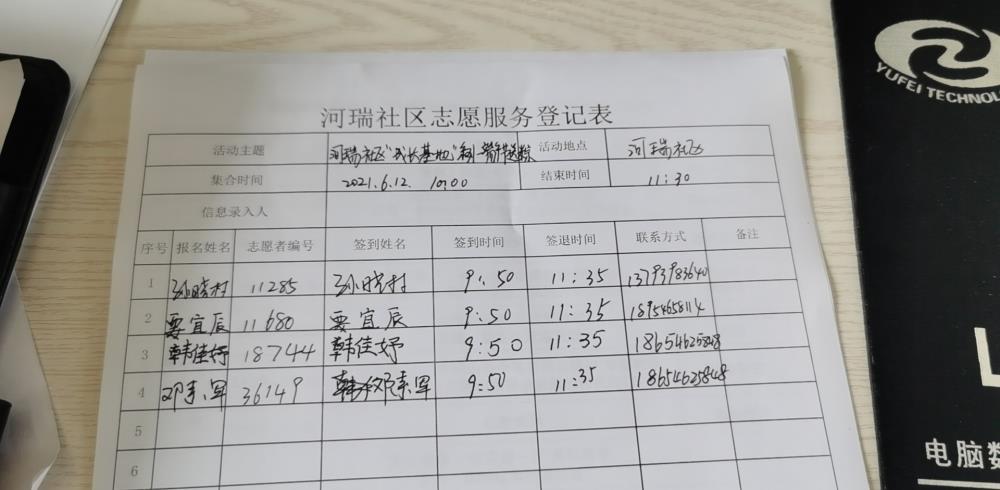 河瑞社区志愿服务登记表
活动主题 河瑞社区"成长基地" 活动地点 河瑞社区
集合时间 2021.6.12. 10:00 结束时间 11:30
信息录入人
序号 报名姓名 志愿者编号 签到姓名 签到时间 签退时间 联系方式 备注
1 孙晓村 11285 孙晓村 9:50 11:35 13793983640
2 要宜辰 11680 要宜辰 9:50 11:35 18954658114
3 韩佳妤 18744 韩佳妤 9:50 11:35 18654625848
4 邓素军 36149 邓素军 9:50 11:35 18654625848
5
6
YUFEI TECHNOL
L
电脑数